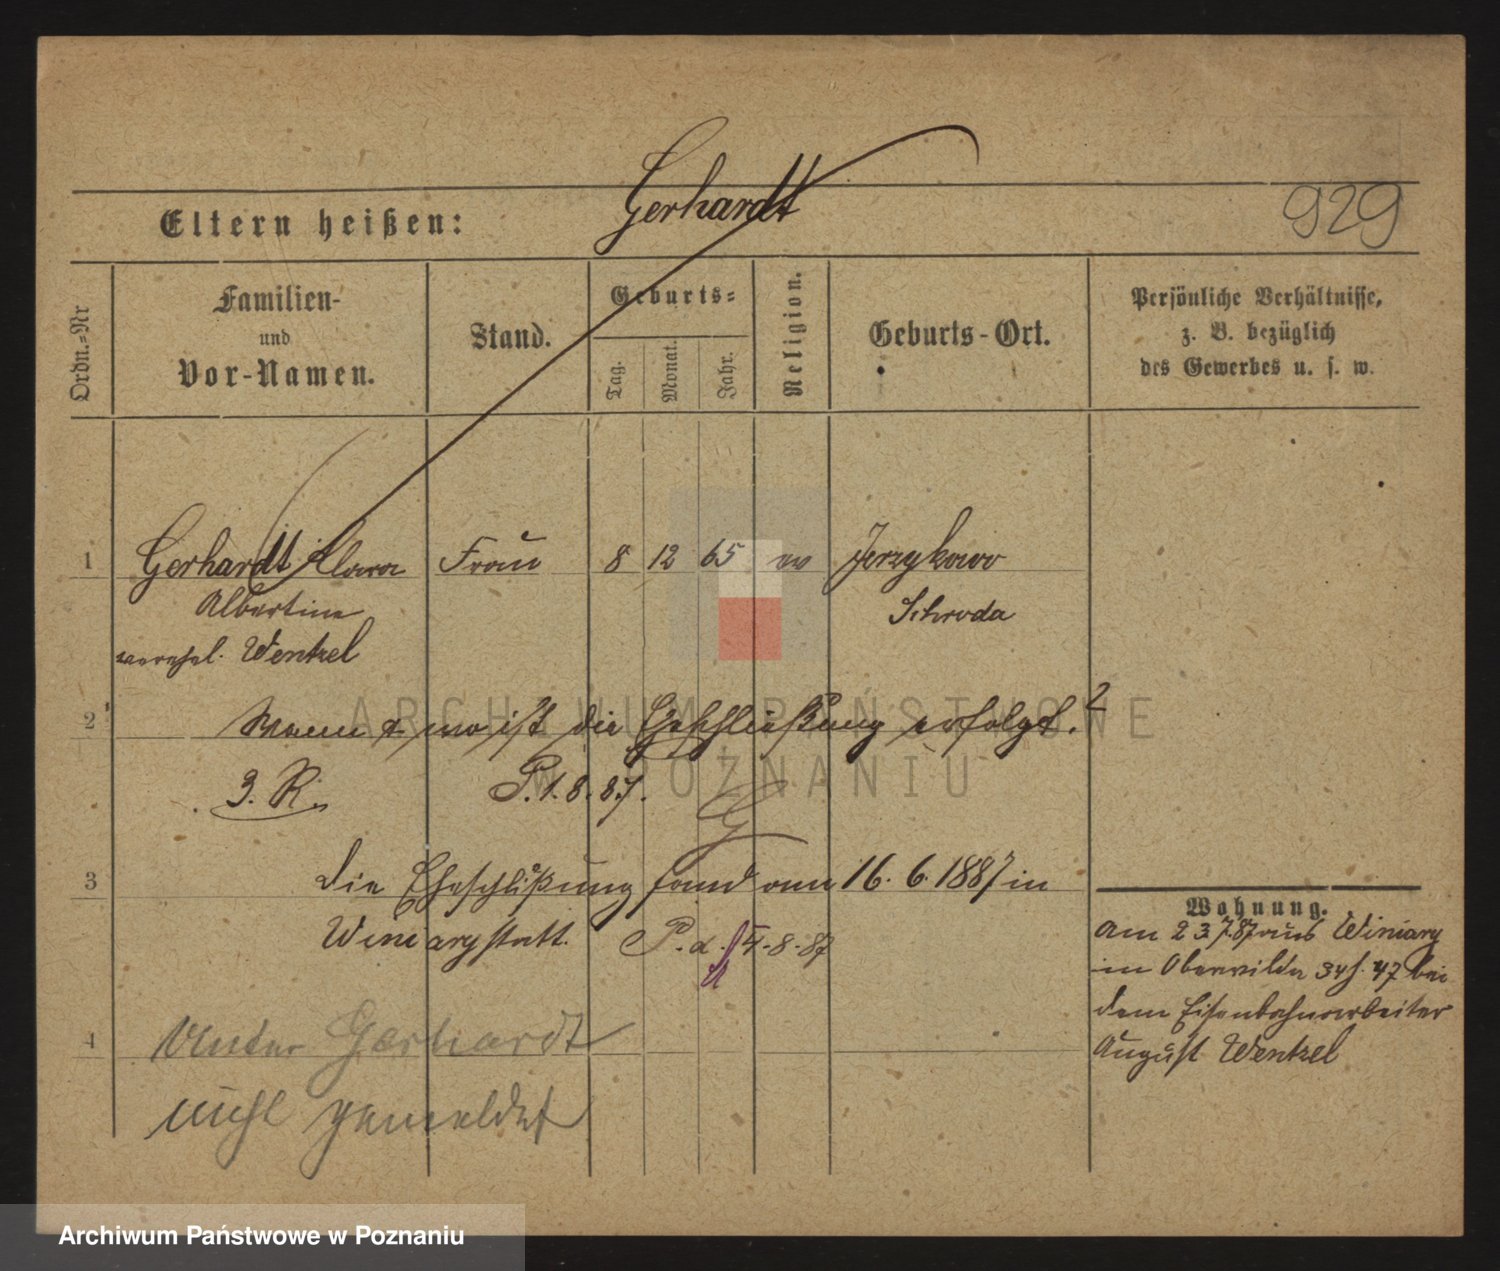 Gerhardt
929
Eltern heißen:
Ordn.=Nr
Familien-
und
Vor-Namen.
Stand.
Geburts=
Tag.
Monat.
Jahr.
Religion.
Geburts-Ort.
Persönliche Verhältnisse,
z. B. bezüglich
des Gewerbes u. s. w.
1 Gerhardt Klara Frau 8 12 65 ev Jerzykowo
Albertine Schroda
verehel. Wentzel
2 Wann & wo ist die Eheschließung erfolgt?
3. R. P. 1. 8. 87.
3 Die Eheschlißung fand am 16. 6. 1887 in
Winiary statt. P. d. 4-8-87
Wohnung.
Am 23 7 87 aus Winiary
in Oberwilda 34 47 bei
dem Eisenbahnarbeiter
August Wentzel
4 Unter Gerhardt
nicht gemeldet
ARCHIWUM PAŃSTWOWE
W POZNANIU
Archiwum Państwowe w Poznaniu